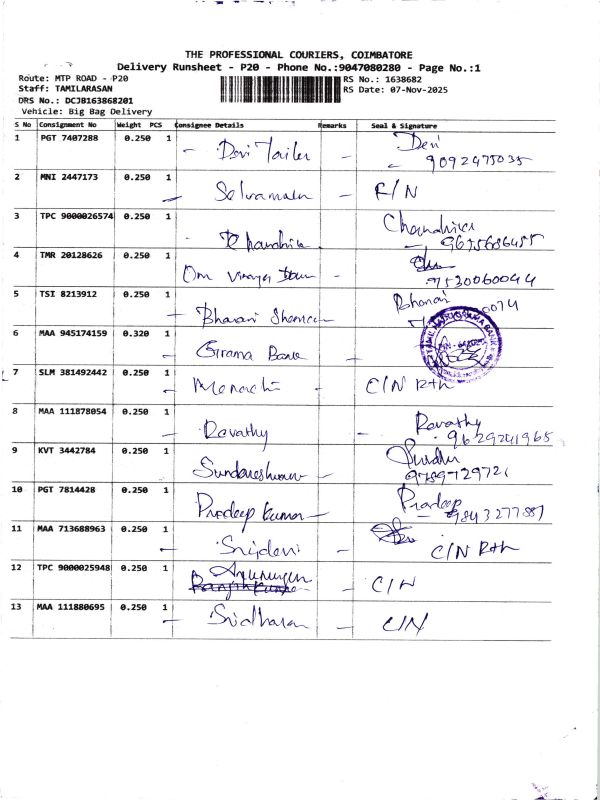 THE PROFESSIONAL COURIERS, COIMBATORE
Delivery Runsheet - P20 - Phone No.:9047080280 - Page No.:1
Route: MTP ROAD - P20 RS No.: 1638682
Staff: TAMILARASAN RS Date: 07-Nov-2025
DRS No.: DCJB163868201
Vehicle: Big Bag Delivery
S No Consignment No Weight PCS Consignee Details Remarks Seal & Signature
1 PGT 7407288 0.250 1 - Devi Tailer - Devi
9092475035
2 MNI 2447173 0.250 1 - Selvamalu - F/N
3 TPC 9000026574 0.250 1 - Chandrika Chandrika
- 9675686455
4 TMR 20128626 0.250 1 Om - 
9520060044
5 TSI 8213912 0.250 1 - Bharani - Bharani
6 MAA 945174159 0.320 1 - Grama Bank +
7 SLM 381492442 0.250 1 - Menachi - C/N Rth
8 MAA 111878054 0.250 1 - Revathy - Revathy
9629241965
9 KVT 3442784 0.250 1 Sundareshwaran -
9789729721
10 PGT 7814428 0.250 1 Pradeep Kumar - Pradeep
9843277887
11 MAA 713688963 0.250 1 - Sridevi - C/N Rth
12 TPC 9000025948 0.250 1 - C/N
13 MAA 111880695 0.250 1 - Sridharan - C/N